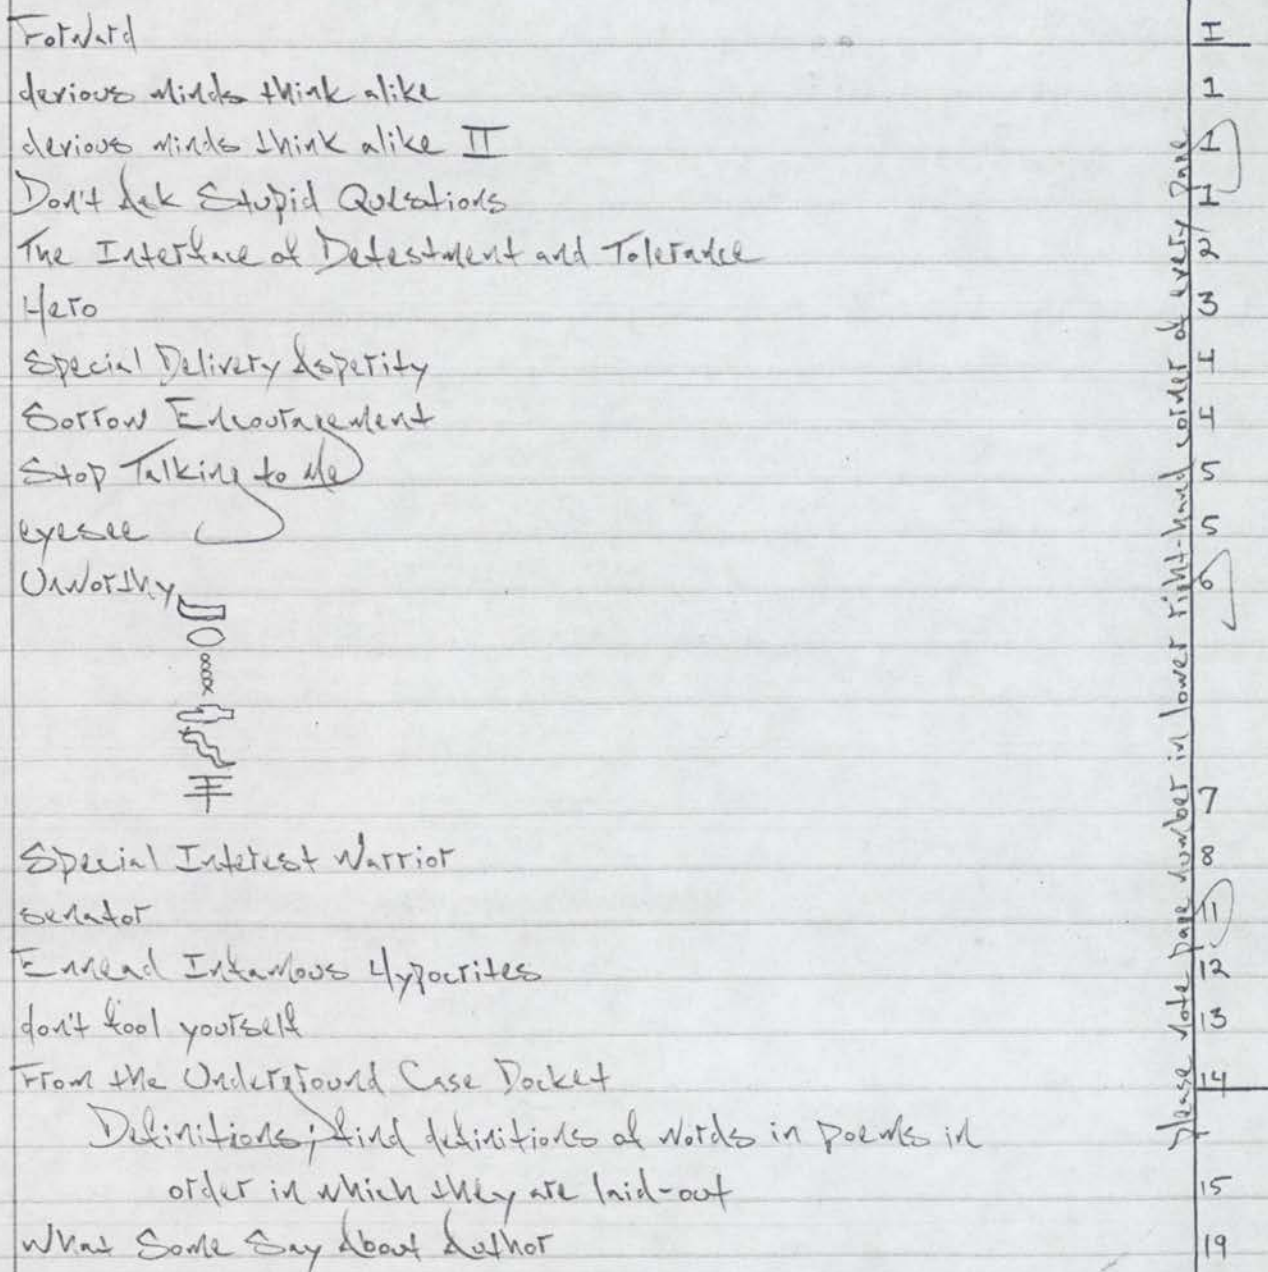 Forward I
devious minds think alike 1
devious minds think alike II 1
Don't Ask Stupid Questions 1
The Interface of Detestment and Tolerance 2
Hero 3
Special Delivery Asperity 4
Sorrow Encouragement 4
Stop Talking to Me 5
eyesee 5
Unworthy 6
7
Special Interest Warrior 8
senator 11
Ennead Infamous Hypocrites 12
don't fool yourself 13
From the Underground Case Docket 14
Definitions; find definitions of words in poems in
order in which they are laid-out 15
What Some Say About Author 19
please note page number in lower right-hand corner of every page